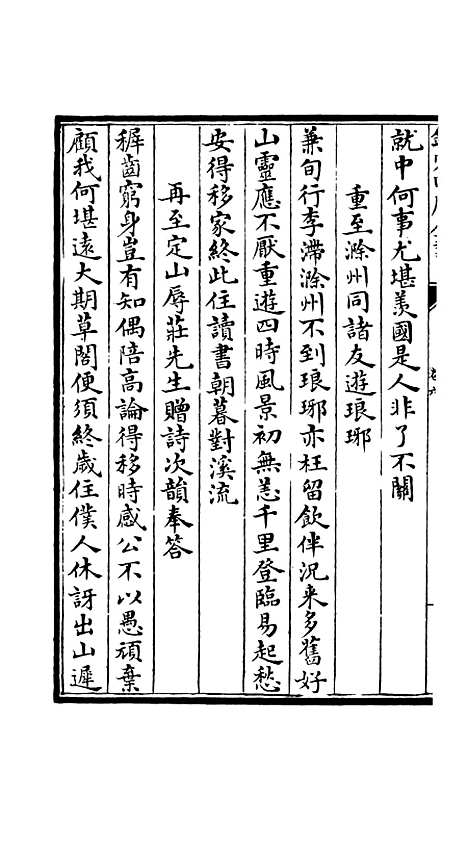 就中何事尤堪羡國是人非了不關
重至滁州同諸友遊琅琊
兼旬行李滯滁州不到琅琊亦枉留飲伴況来多舊好
山靈應不厭重遊四時風景初無恙千里登臨易起愁
安得移家終此住讀書朝暮對溪流
再至定山辱莊先生贈詩次韻奉答
穉齒窮身豈有知偶陪高論得移時感公不以愚頑棄
顧我何堪遠大期草閣便須終歳住僕人休訝出山遲